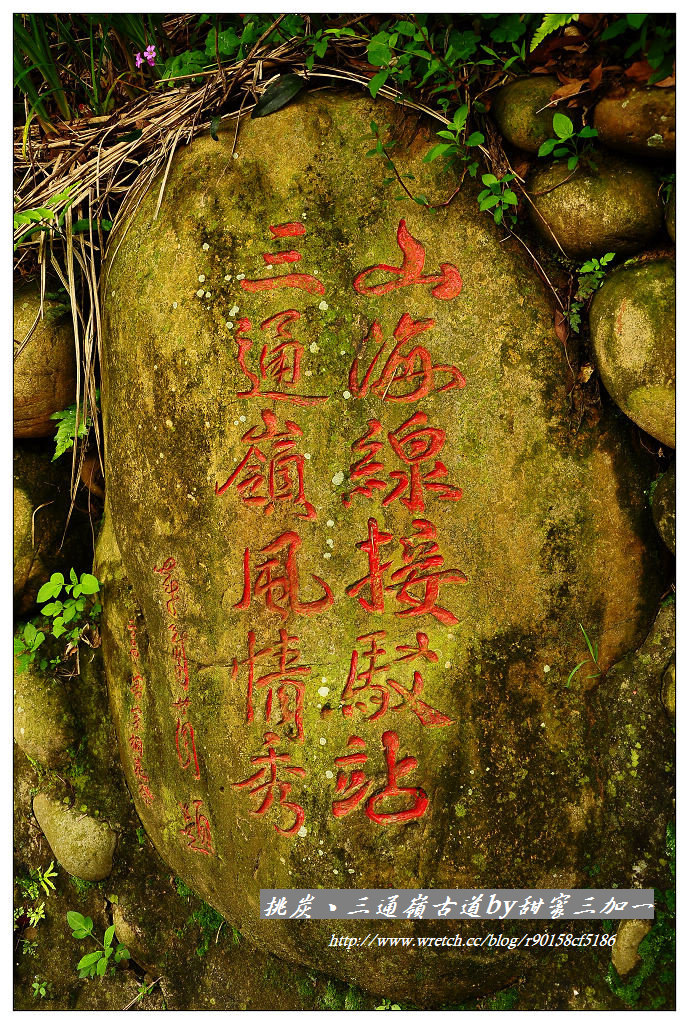 山海線接駁站
三通嶺風情秀
題
挑炭、三通嶺古道by甜蜜三加一
http://www.wretch.cc/blog/r90158cf5186